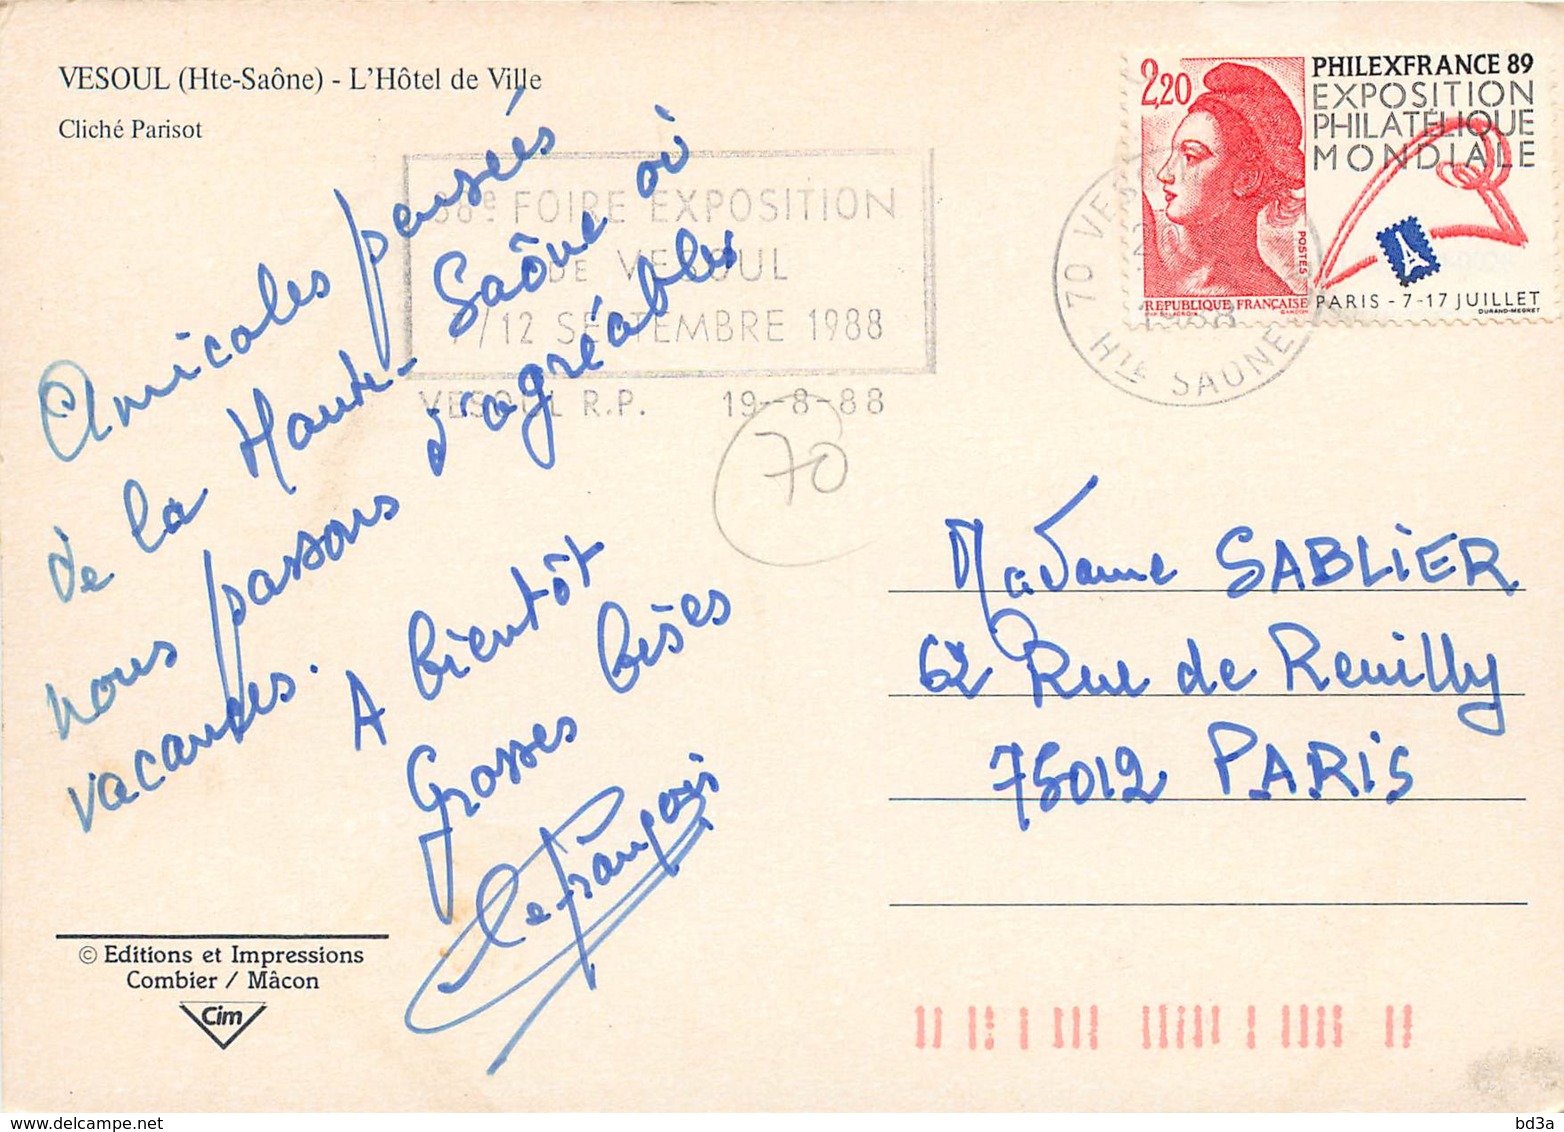 VESOUL (Hte-Saône) - L'Hôtel de Ville
Cliché Parisot
2,20
POSTES
REPUBLIQUE FRANÇAISE
GANDON
PHILEXFRANCE 89
EXPOSITION
PHILATÉLIQUE
MONDIALE
PARIS - 7-17 JUILLET
DURAND-MEGRET
FOIRE EXPOSITION
DE VESOUL
/12 SEPTEMBRE 1988
VESOUL R.P. 19-8-88
70 VES
1988
HTE SAONE
70
Amicales pensées
de la Haute-Saône où
nous passons d'agréables
vacances.
A bientôt
Grosses bises
Lefrançois
Madame SABLIER
62 Rue de Reuilly
75012 PARIS
© Editions et Impressions
Combier / Mâcon
Cim
bd3a